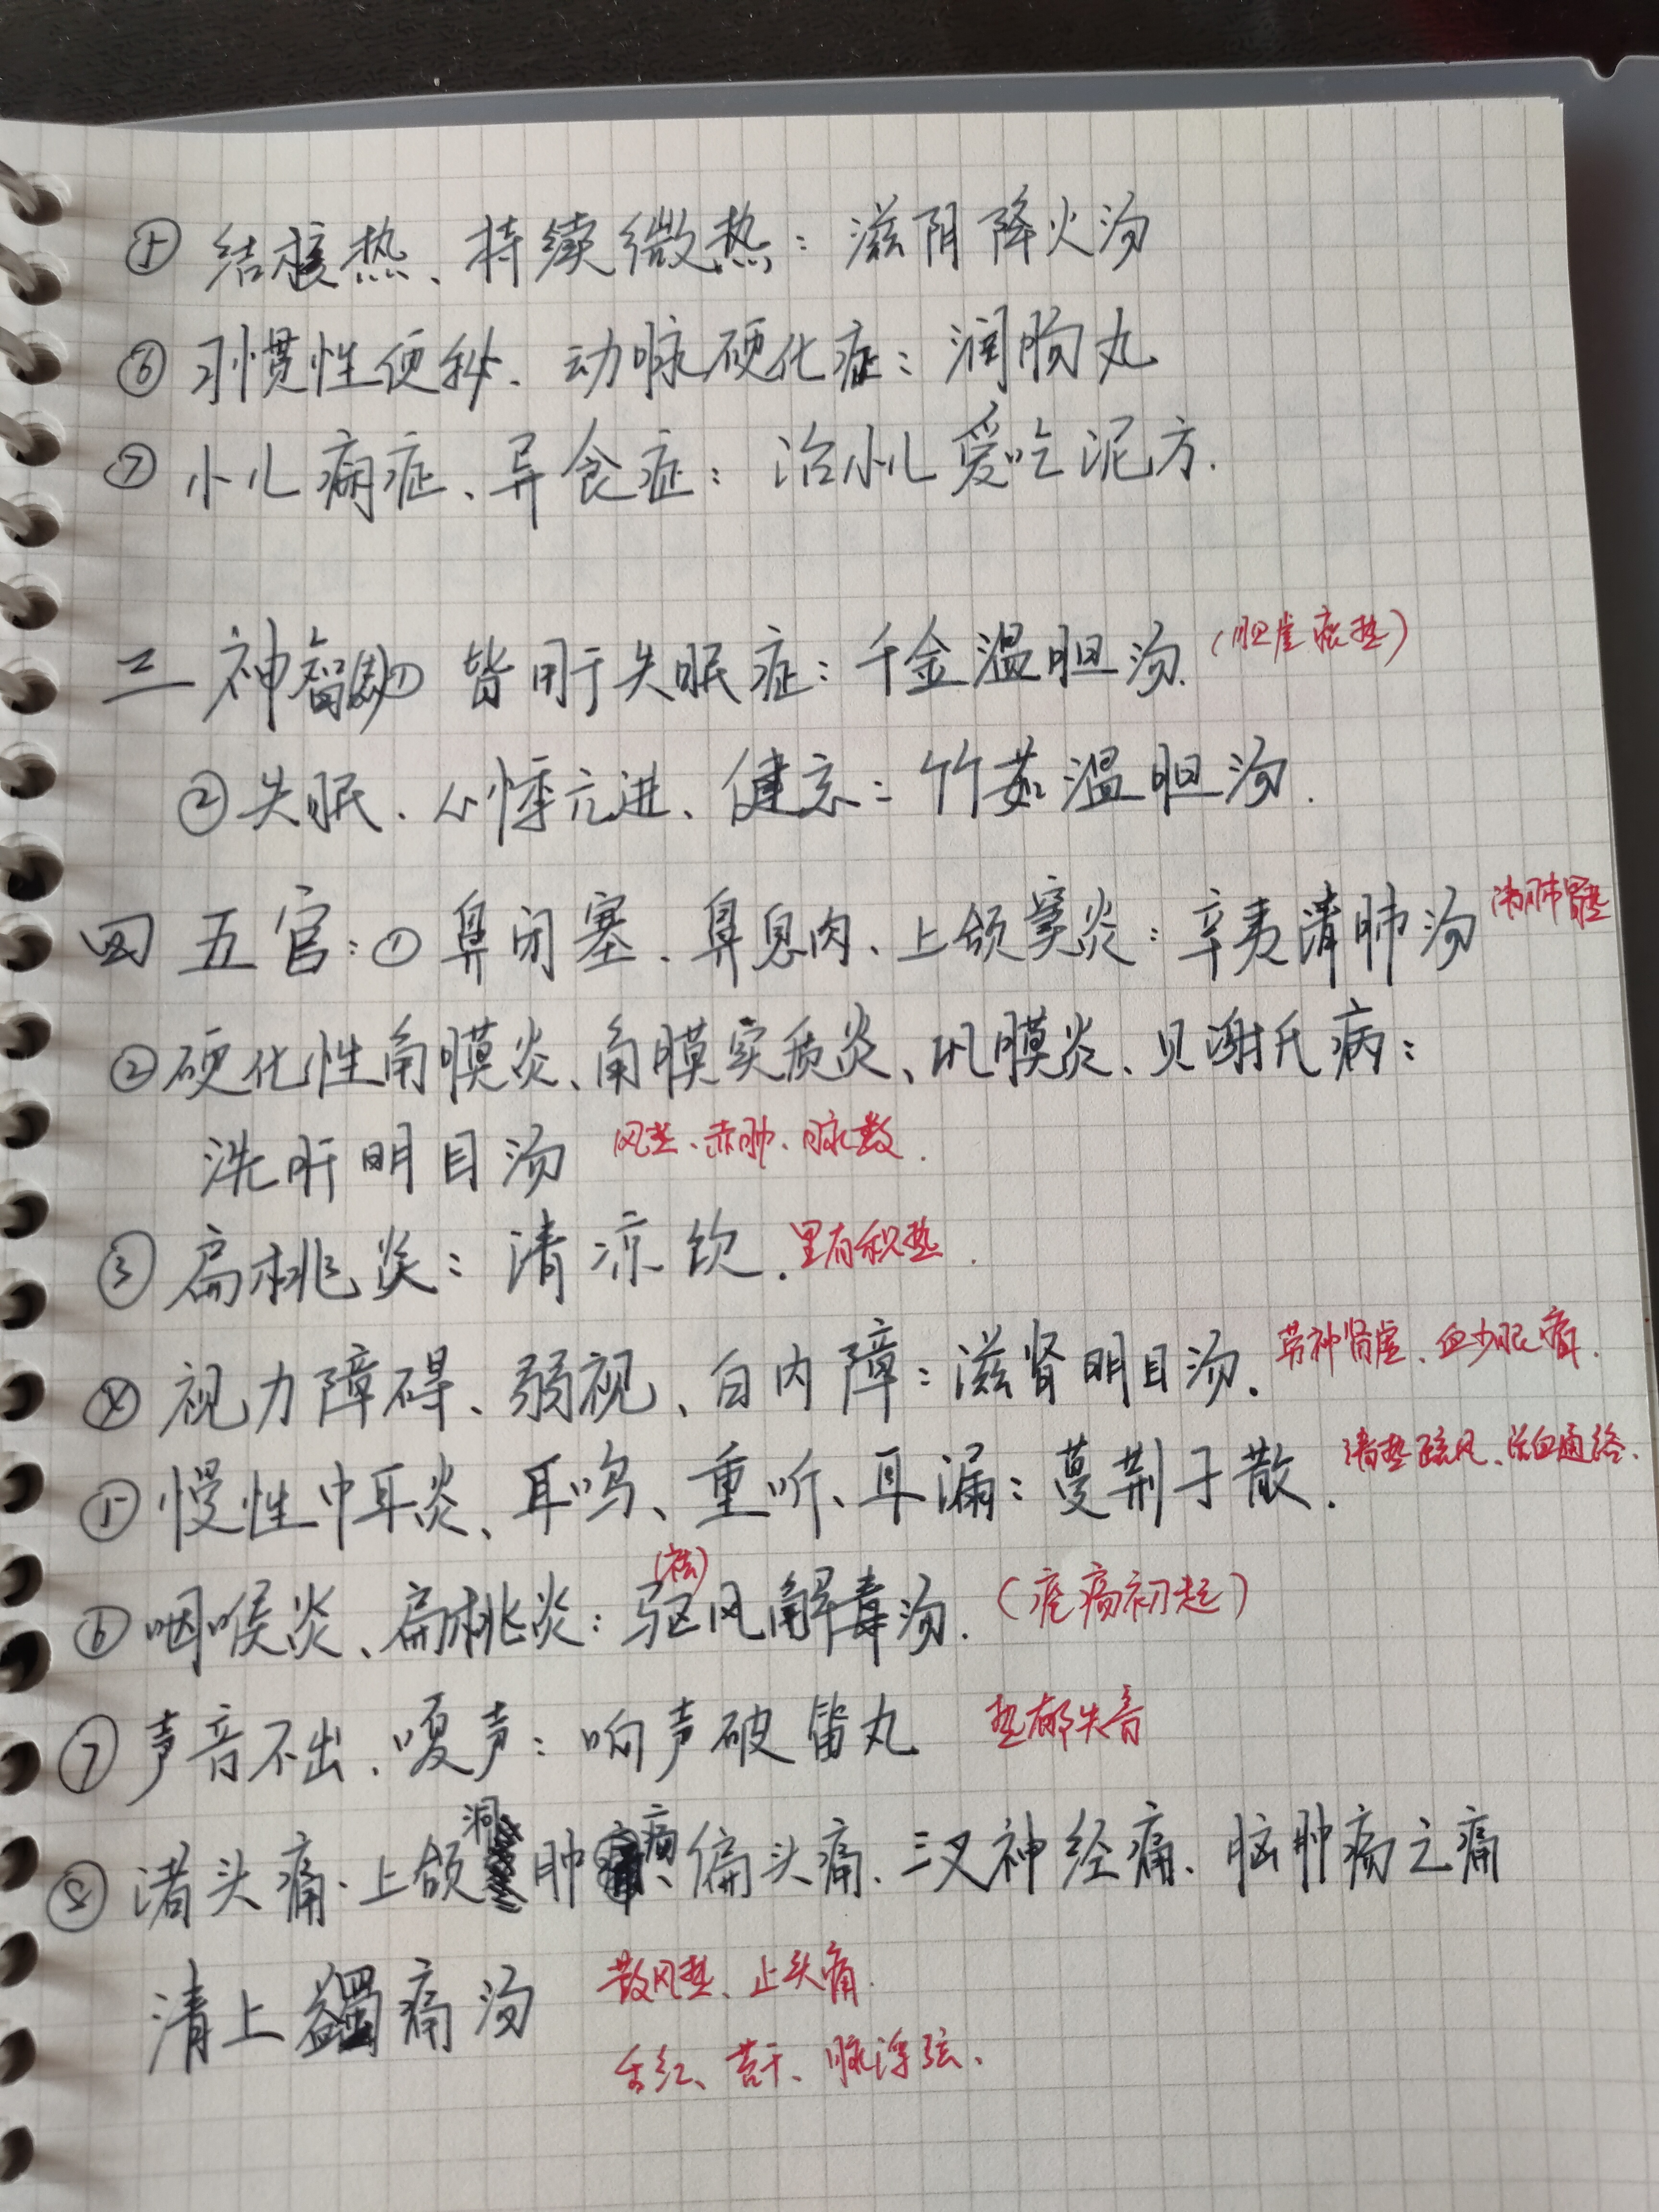 ⑤ 结核热、持续微热：滋阴降火汤
⑥ 习惯性便秘、动脉硬化症：润肠丸
⑦ 小儿病症、异食症：治小儿爱吃泥方.
三 神智 ① 皆用于失眠症：千金温胆汤.（胆虚痰热）
② 失眠、心悸亢进、健忘：竹茹温胆汤.
四 五官：① 鼻闭塞、鼻息肉、上颌窦炎：辛夷清肺汤 清肺胃热
② 硬化性角膜炎、角膜实质炎、巩膜炎、贝谢氏病：
洗肝明目汤 风热、赤肿、脉数.
③ 扁桃炎：清凉饮. 里有积热.
④ 视力障碍、弱视、白内障：滋肾明目汤. 劳神肾虚、血少眼痛.
⑤ 慢性中耳炎、耳鸣、重听、耳漏：蔓荆子散. 清热疏风、活血通络.
⑥ 咽喉炎、扁桃炎：驱(祛)风解毒汤.（疼痛初起）
⑦ 声音不出、嗄声：响声破笛丸 热郁失音
⑧ 诸头痛、上颌洞肿疡、偏头痛、三叉神经痛、脑肿疡之痛
清上蠲痛汤 散风热、止头痛.
舌红、苔干、脉浮弦、